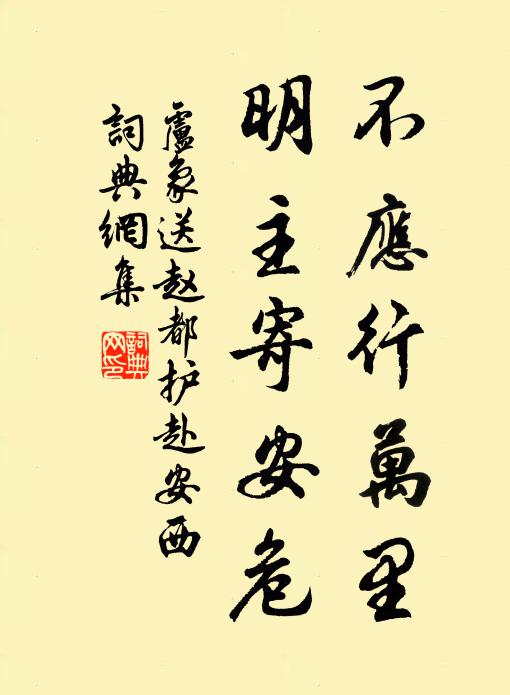 不應行萬里
明主寄安危
盧象送赵都护赴安西
詞典網集
詞典
网印